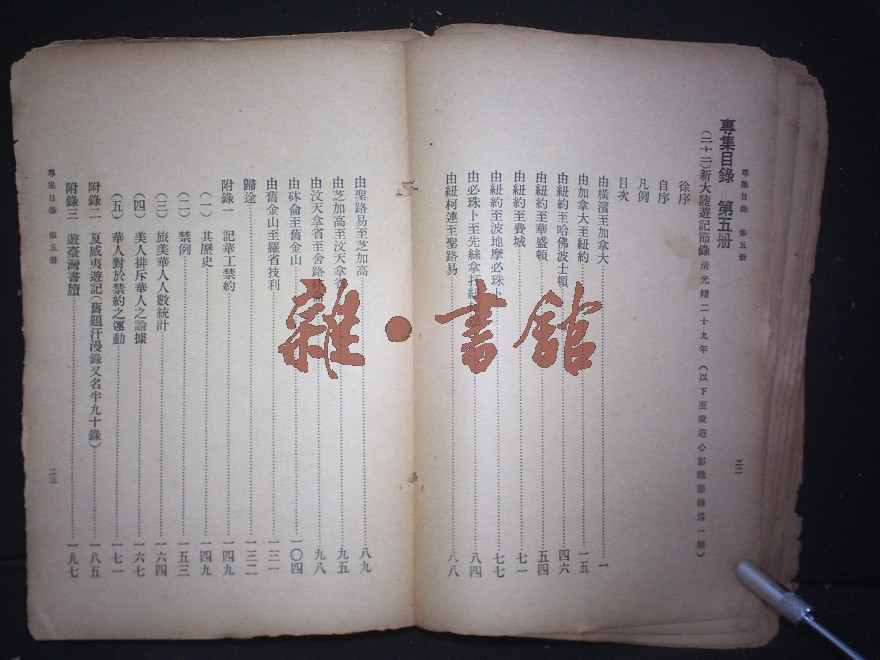 專集目錄 第五册
二二
專集目錄 第五册
(二十二)新大陸遊記節錄 清光緒二十九年 (以下至歐遊心影錄節錄爲一類)
徐序
自序
凡例
目次
由橫濱至加拿大 一
由加拿大至紐約 一五
由紐約至哈佛波士頓 四六
由紐約至華盛頓 五四
由紐約至費城 七一
由紐約至波地摩必珠卜 七七
由必珠卜至先絲拿打 八四
由紐柯連至聖路易 八八
由聖路易至芝加高 八九
由芝加高至汶天拿省 九五
由汶天拿省至舍路 九八
由砵侖至舊金山 一〇四
由舊金山至羅省技利 一三一
歸途 一三二
附錄一 記華工禁約 一四九
(一) 其歷史 一四九
(二) 禁例 一五三
(三) 旅美華人人數統計 一六四
(四) 美人排斥華人之論據 一六七
(五) 華人對於禁約之運動 一七一
附錄二 夏威夷遊記(舊題汗漫錄又名半九十錄) 一八五
附錄三 遊臺灣書牘 一九七
專集目錄 第五册
二三
雜·書館